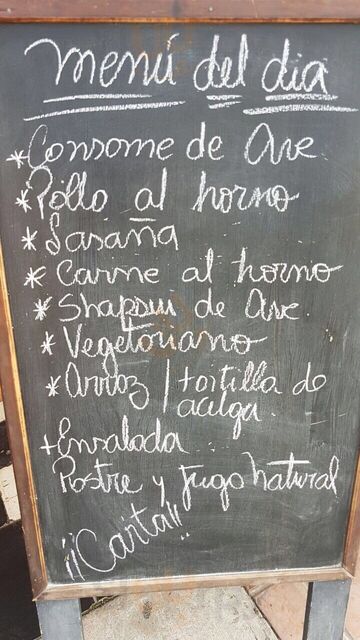 menú del dia
*Consome de Ave
*Pollo al horno
*Lasaña
*Carne al horno
*Shapsui de Ave.
*Vegetariano
*Arroz / tortilla de
acelga.
+Ensalada
Postre y jugo natural
¡¡Carta!!